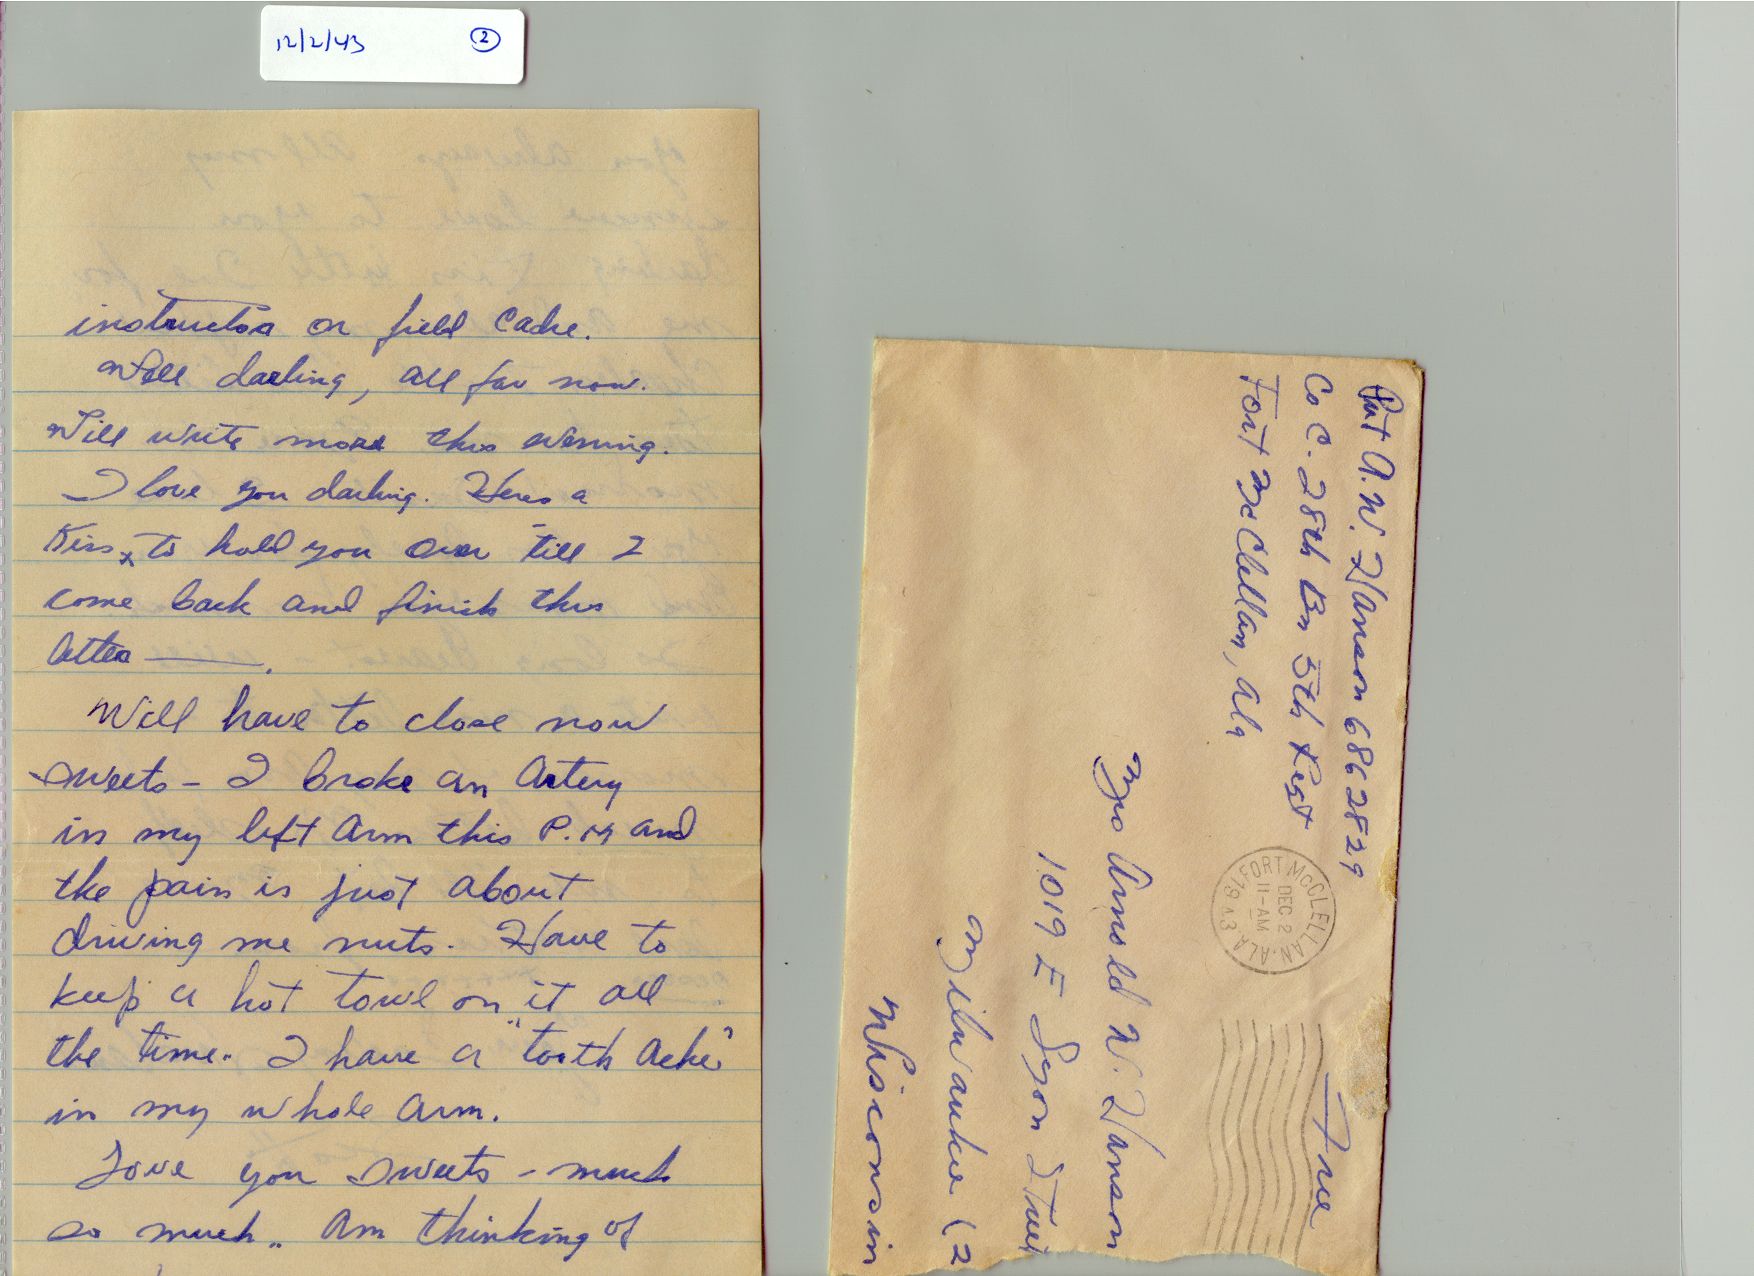 12/2/43 2
instructor or field Cadre.
Well darling, all for now.
Will write more this evening.
I love you darling. Heres a
Kiss x to hold you over 'till I
come back and finish this
letter ———.
Will have to close now
sweets – I broke an Artery
in my left arm this P.M and
the pain is just about
driving me nuts. Have to
keep a hot towl on it all
the time. I have a "tooth Ache"
in my whole arm.
Love you sweets – much
so much.. Am thinking of
Pvt A.W. Hanson 6862829
Co C. 28th Bn 5th Regt
Fort McClellan, Ala
FORT McCLELLAN, ALA
DEC 2
11-AM
1943
Free
Mrs Arnold W. Hanson
1019 E Lyon Street
Milwaukee (2
Wisconsin